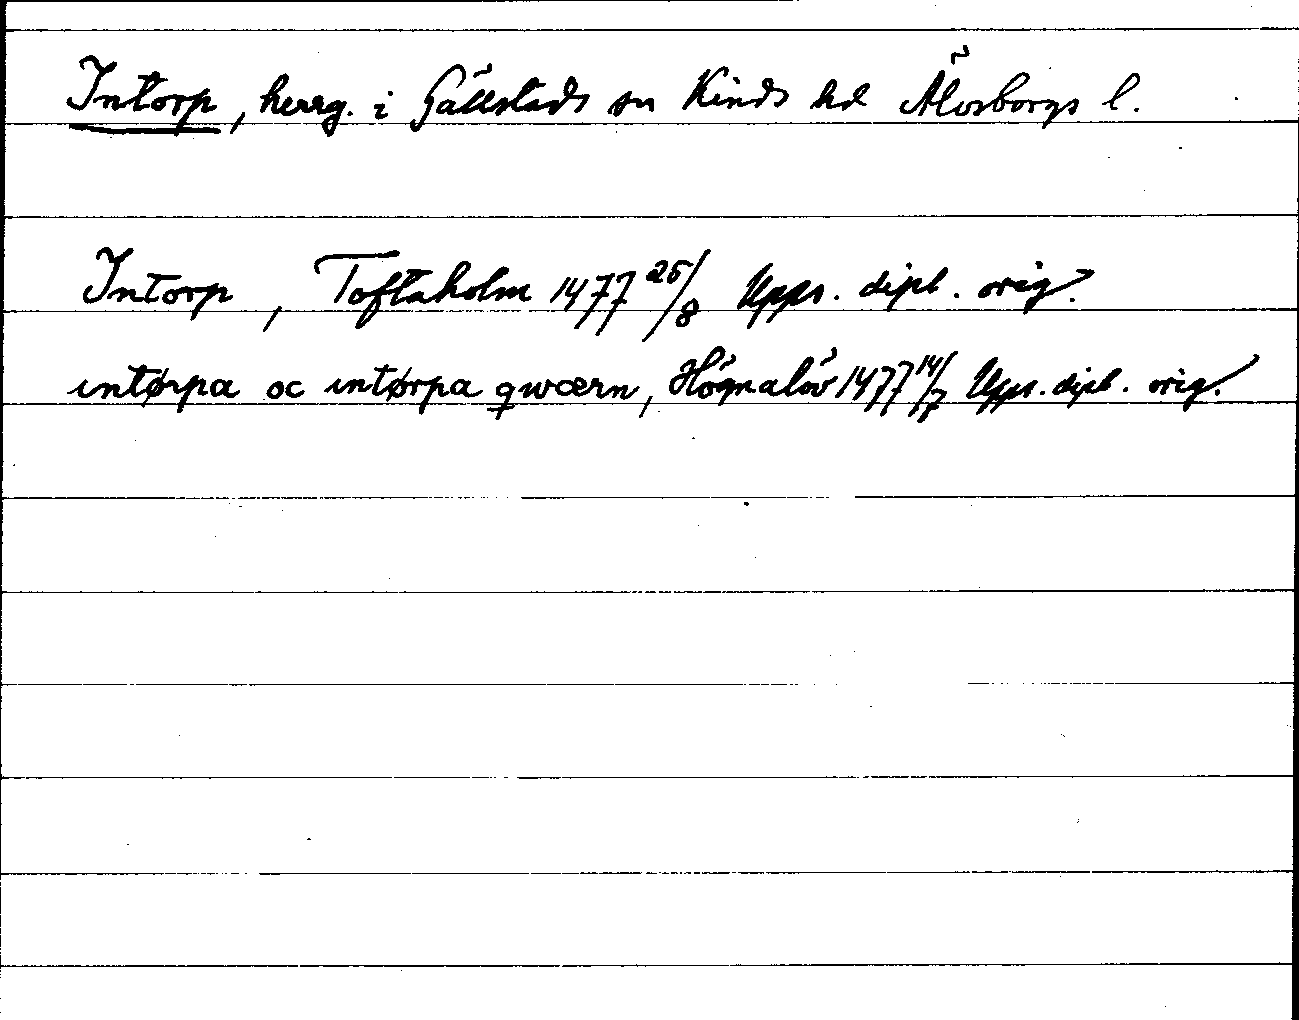 Intorp, herrg. i Gällstads sn Kinds hd Älvsborgs l.
Intorp, Toftaholm 1477 25/8 Upps. dipl. orig.
intørpa oc intørpa qwærn, Högnalöv 1477 14/7 Upps. dipl. orig.